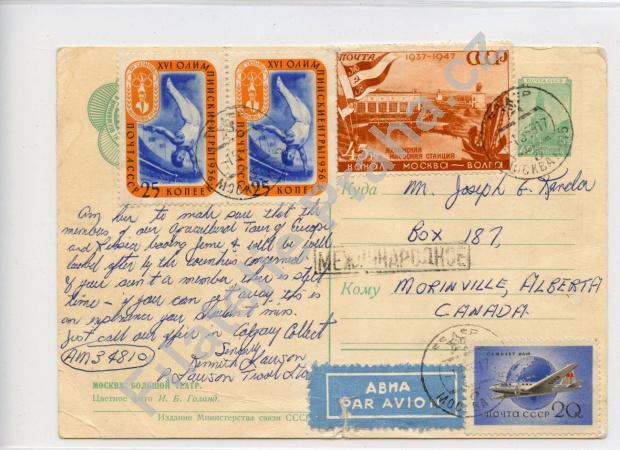 XVI ОЛИМПИЙСКИЕ ИГРЫ 1956
ПОЧТА СССР
25 КОПЕЕК
XVI ОЛИМПИЙСКИЕ ИГРЫ 1956
ПОЧТА СССР
25 КОПЕЕК
ПОЧТА 1937-1947 СССР
НАСОСНАЯ СТАНЦИЯ
КАНАЛ МОСКВА-ВОЛГА
ПОЧТА СССР
МОСКВА
Куда Mr. Joseph G.
BOX 187,
МЕЖДУНАРОДНОЕ
Кому MORINVILLE, ALBERTA
CANADA
Am here to make sure that the
members of our Agricultural Tour of Europe
and Russia leaving June 4 will be well
looked after by the countries concerned
If your isn't a member there is still
time - if you can get away this is
an experience you shouldn't miss.
Just call our office in Calgary Collect
AM34810
Kenneth Lawson
Lawson Travel Ltd
МОСКВА. БОЛЬШОЙ ТЕАТР.
Цветное фото И. Б. Голанд.
Издание Министерства связи СССР
АВИА
PAR AVION
МОСКВА
САМОЛЕТ
ПОЧТА СССР 20к
Filatelie-Praha.cz